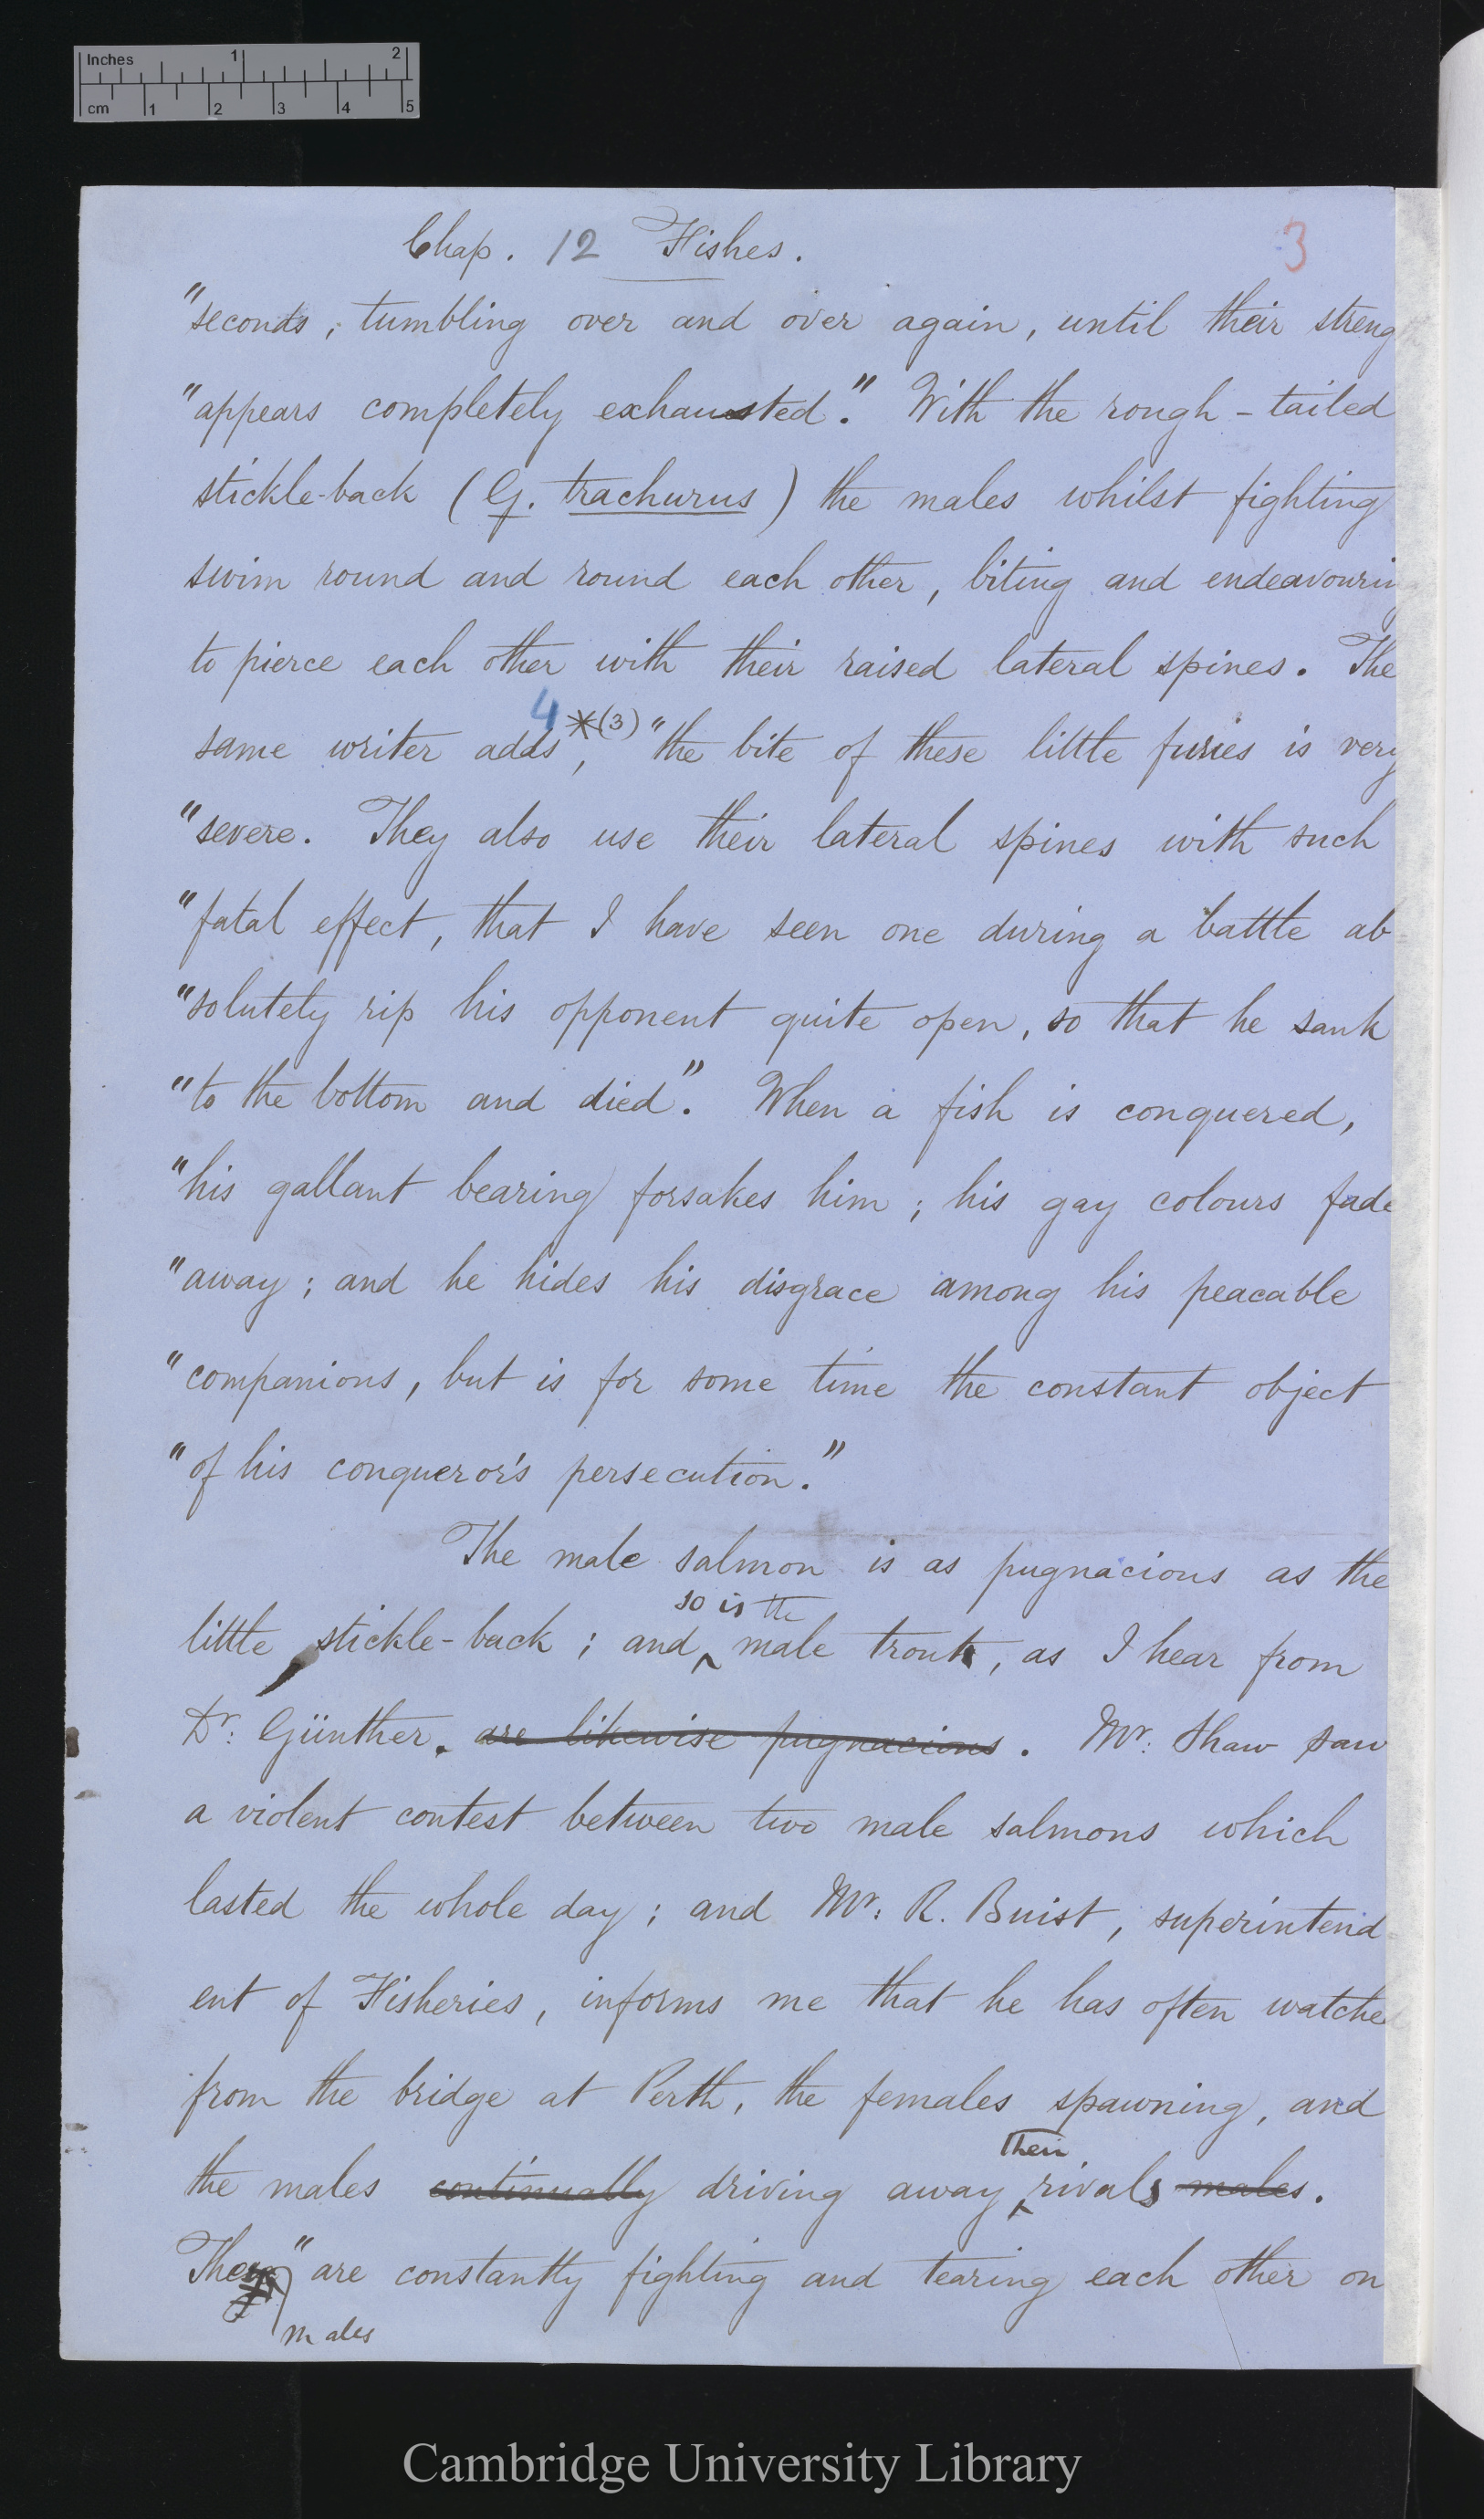 Inches 1 2
cm 1 2 3 4 5
Chap. 12 Fishes. 3
"seconds, tumbling over and over again, until their streng
"appears completely exhausted." With the rough-tailed
stickle-back (G. trachurus) the males whilst fighting
swim round and round each other, biting and endeavourin
to pierce each other with their raised lateral spines. The
4 *(3)
same writer adds, "the bite of these little furies is very
"severe. They also use their lateral spines with such
"fatal effect, that I have seen one during a battle ab-
"solutely rip his opponent quite open, so that he sank
"to the bottom and died". When a fish is conquered,
"his gallant bearing forsakes him; his gay colours fade
"away; and he hides his disgrace among his peacable
"companions, but is for some time the constant object
"of his conqueror's persecution."
The male salmon is as pugnacious as the
so is the
little stickle-back; and male trout, as I hear from
Dr. Günther. are likewise pugnacious. Mr. Shaw saw
a violent contest between two male salmons which
lasted the whole day; and Mr. R. Buist, superintend-
ent of Fisheries, informs me that he has often watched
from the bridge at Perth, the females spawning, and
their
the males continually driving away rivals males.
The "are constantly fighting and tearing each other on
males
Cambridge University Library